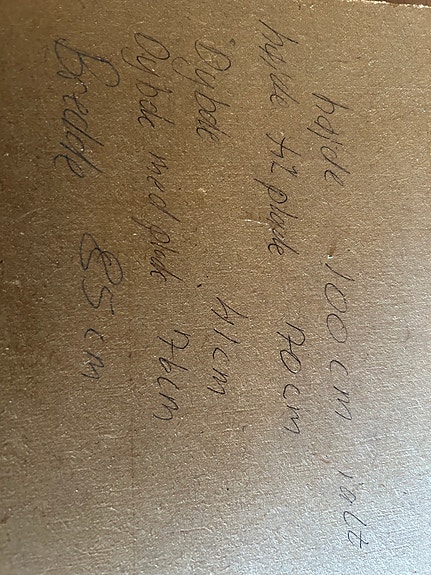 højde 100 cm i alt
højde til plade 70 cm
Dybde 41 cm
Dybde med plade 76cm
Bredde 85 cm